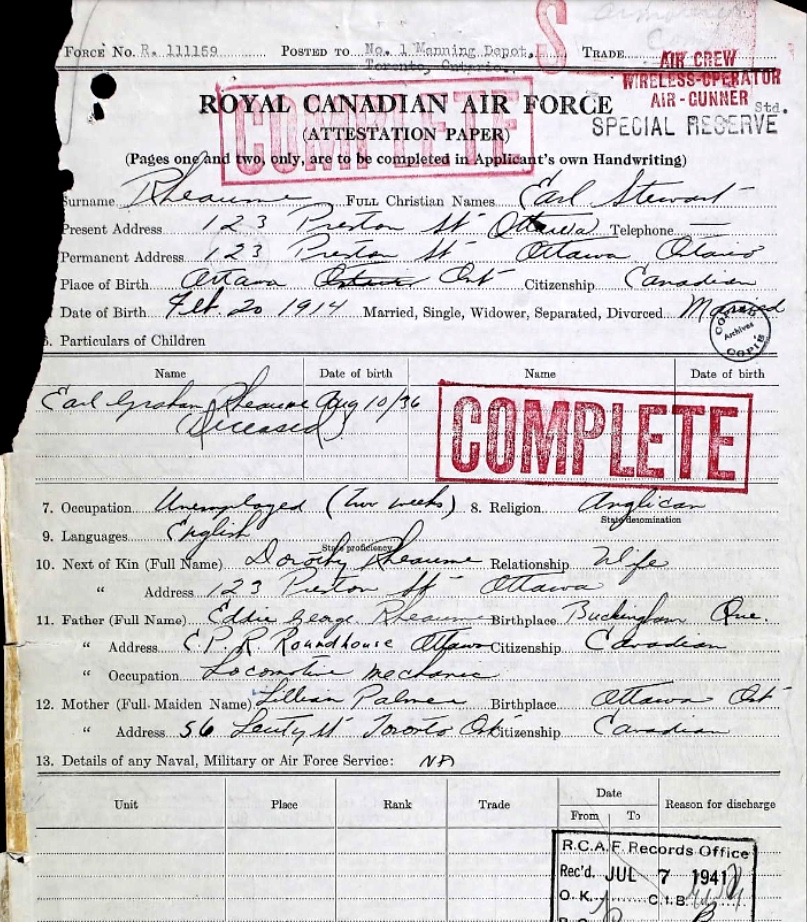 FORCE NO. R. 111159 POSTED TO No. 1 Manning Depot, TRADE
Toronto, Ontario.
S
AIR CREW
WIRELESS-OPERATOR
AIR-GUNNER Std.
SPECIAL RESERVE
COMPLETE
ROYAL CANADIAN AIR FORCE
(ATTESTATION PAPER)
(Pages one and two, only, are to be completed in Applicant's own Handwriting)
Surname Rheaume FULL Christian Names Earl Stewart
Present Address 123 Preston St Ottawa Telephone —
Permanent Address 123 Preston St Ottawa Ontario
Place of Birth Ottawa Ont Citizenship Canadian
Date of Birth Feb. 20 1914 Married, Single, Widower, Separated, Divorced Married
Archives
COPIE
6. Particulars of Children
Name Date of birth Name Date of birth
Earl Graham Rheaume Aug 10/36
(Deceased)
COMPLETE
7. Occupation Unemployed (two weeks) 8. Religion Anglican
State denomination
9. Languages English
State proficiency
10. Next of Kin (Full Name) Dorothy Rheaume Relationship Wife
" Address 123 Preston St Ottawa
11. Father (Full Name) Eddie George Rheaume Birthplace Buckingham Que.
" Address C.P.R. Roundhouse Ottawa Citizenship Canadian
" Occupation Locomotive Mechanic
12. Mother (Full Maiden Name) Lillian Palmer Birthplace Ottawa Ont
" Address 56 Leuty St Toronto Ont Citizenship Canadian
13. Details of any Naval, Military or Air Force Service:
Unit Place Rank Trade Date Reason for discharge
From To
R.C.A.F. Records Office
Rec'd. JUL 7 1941
O.K. C.I.B.